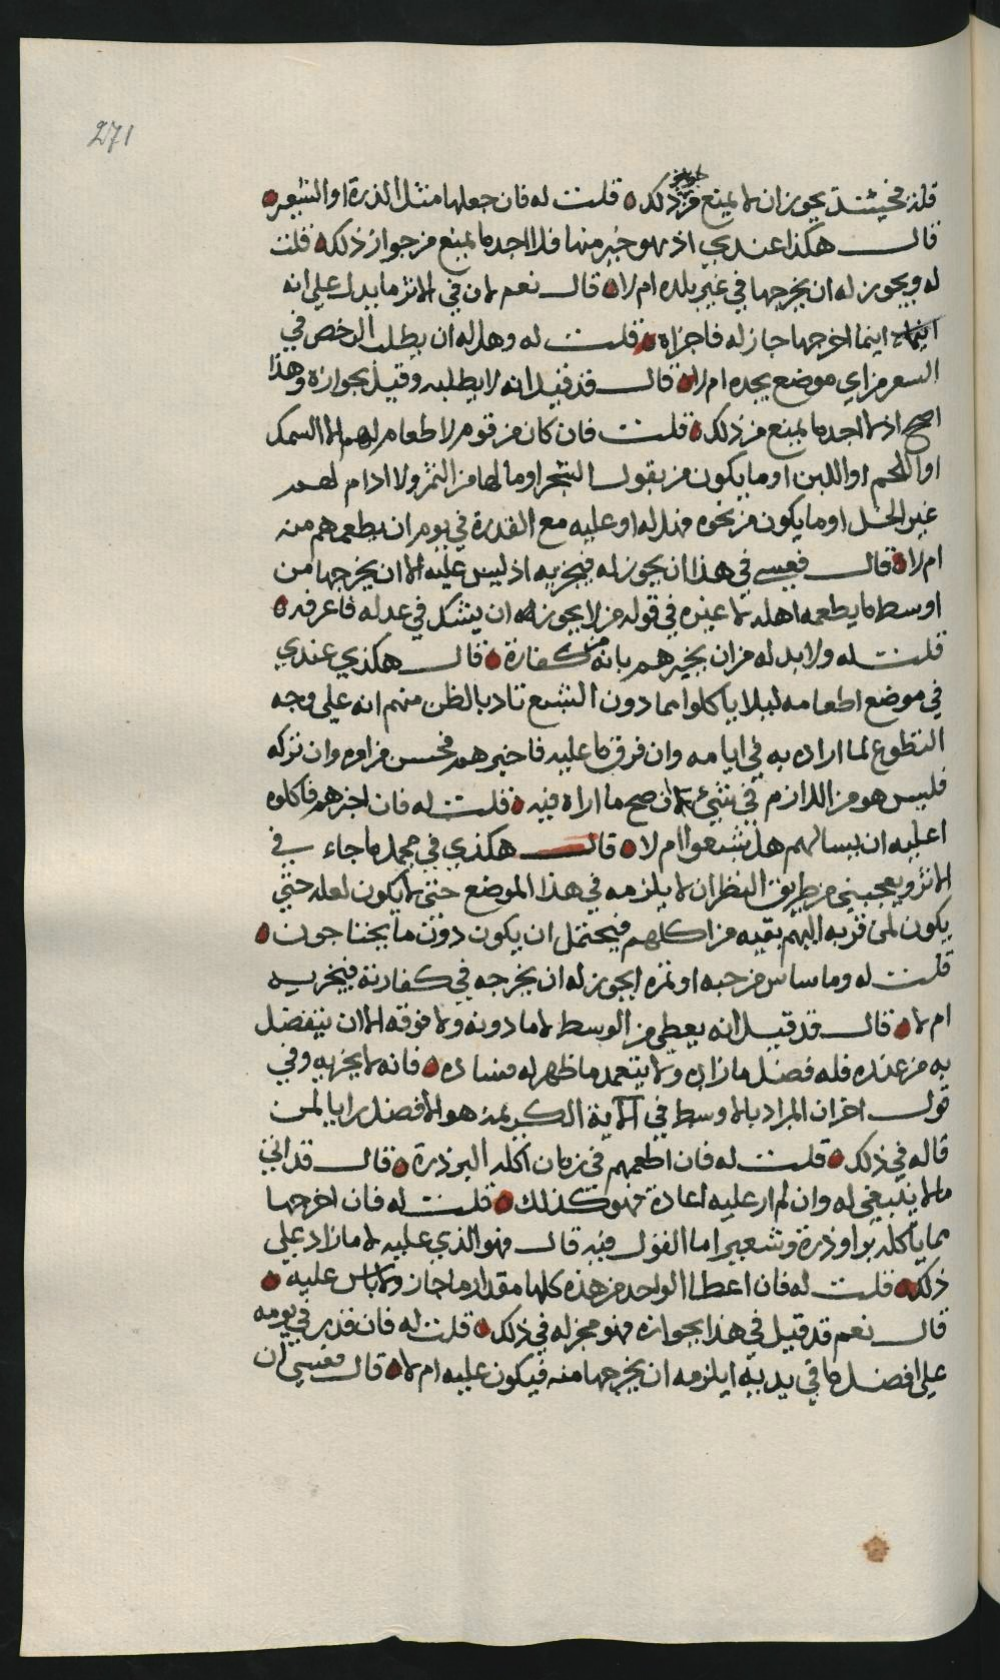 271
قلنه فحينئذ يجوز ان لا يمنع من ذلك قلت له فان جعلها مثل الذرة او الشعير
قال هكذا عندي اذ هو خير منها فلا اجد ما يمنع من جواز ذلك قلت
له ويجوز له ان يخرجها في غير بلده ام لا قال نعم لان في الاثر ما يدل على انه
اينما اخرجها جاز له فاجزاه قلت له وهل له ان يطلب الرخص في
السعر من اي موضع يجده ام لا قال قد قيل انه لا يطلبه وقيل بجوازه وهذا
اصح اذ لا اجد ما يمنع من ذلك قلت فان كان من قوم لا طعام لهم الا السمك
او اللحم او اللبن او ما يكون من بقول الشجر او مالها من الثمر ولا ادام لهم
غير الخل او ما يكون من نحوه فهل له او عليه مع القدرة في يوم ان يطعمهم منه
ام لا قال فعسى في هذا ان يجوز له فيجزيه اذ ليس عليه الا ان يخرجها من
اوسط ما يطعمه اهله لا غيره في قول من لا يجوز له ان يشكل في عدله فاعرفه
قلت له ولا بد له من ان يخبرهم بانه من كفارة قال هكذي عندي
في موضع اطعامه ليلا ياكلوا مما دون الشبع تادبا لظن منهم انه على وجه
التطوع لما اراده به في ايامه وان فرق ما عليه فاخبرهم فحسن من امره وان تركه
فليس هو من اللازم في شيء لان صح ما اراه فيه قلت له فان اخبرهم فاكلوه
اعليه ان يسالهم هل شبعوا ام لا قال هكذي في مجمل ما جاء في
الاثر ويعجبني من طريق النظر ان لا يلزمه في هذا الموضع حتى لا يكون لعله حتى
يكون لمن قربه اليهم بقيه من اكلهم فيحتمل ان يكون دون ما يحتاجون
قلت له وما ساس من حبه او تمره ايجوز له ان يخرجه في كفارته فيجزيه
ام لا قال قد قيل انه يعطي من الوسط لا ما دونه ولا فوقه الا ان يتفضل
به من عنده فله فضل ما زاده ولا يتعمد ما ظهر له فساده فانه لا يجزيه وفي
قول اخر ان المراد بالاوسط في الآية الكريمة هو الافضل رايا لمن
قاله في ذلك قلت له فان اطعمهم في زمان اكله البر ذرة قال قد اتى
ما لا ينبغي له وان لم ار عليه اعادة فهو كذلك قلت له فان اخرجها
مما ياكله برا او ذرة وشعيرا ما القول فيه قال فهو الذي عليه لا ما زاد على
ذلك قلت له فان اعطا الواحد من هذه كلها مقدار ما جاز ولا باس عليه
قال نعم قد قيل في هذا بجوازه فهو مجز له في ذلك قلت له فان قدر في يومه
على افضل ما في يديه ايلزمه ان يخرجها منه فيكون عليه ام لا قال فعسى ان